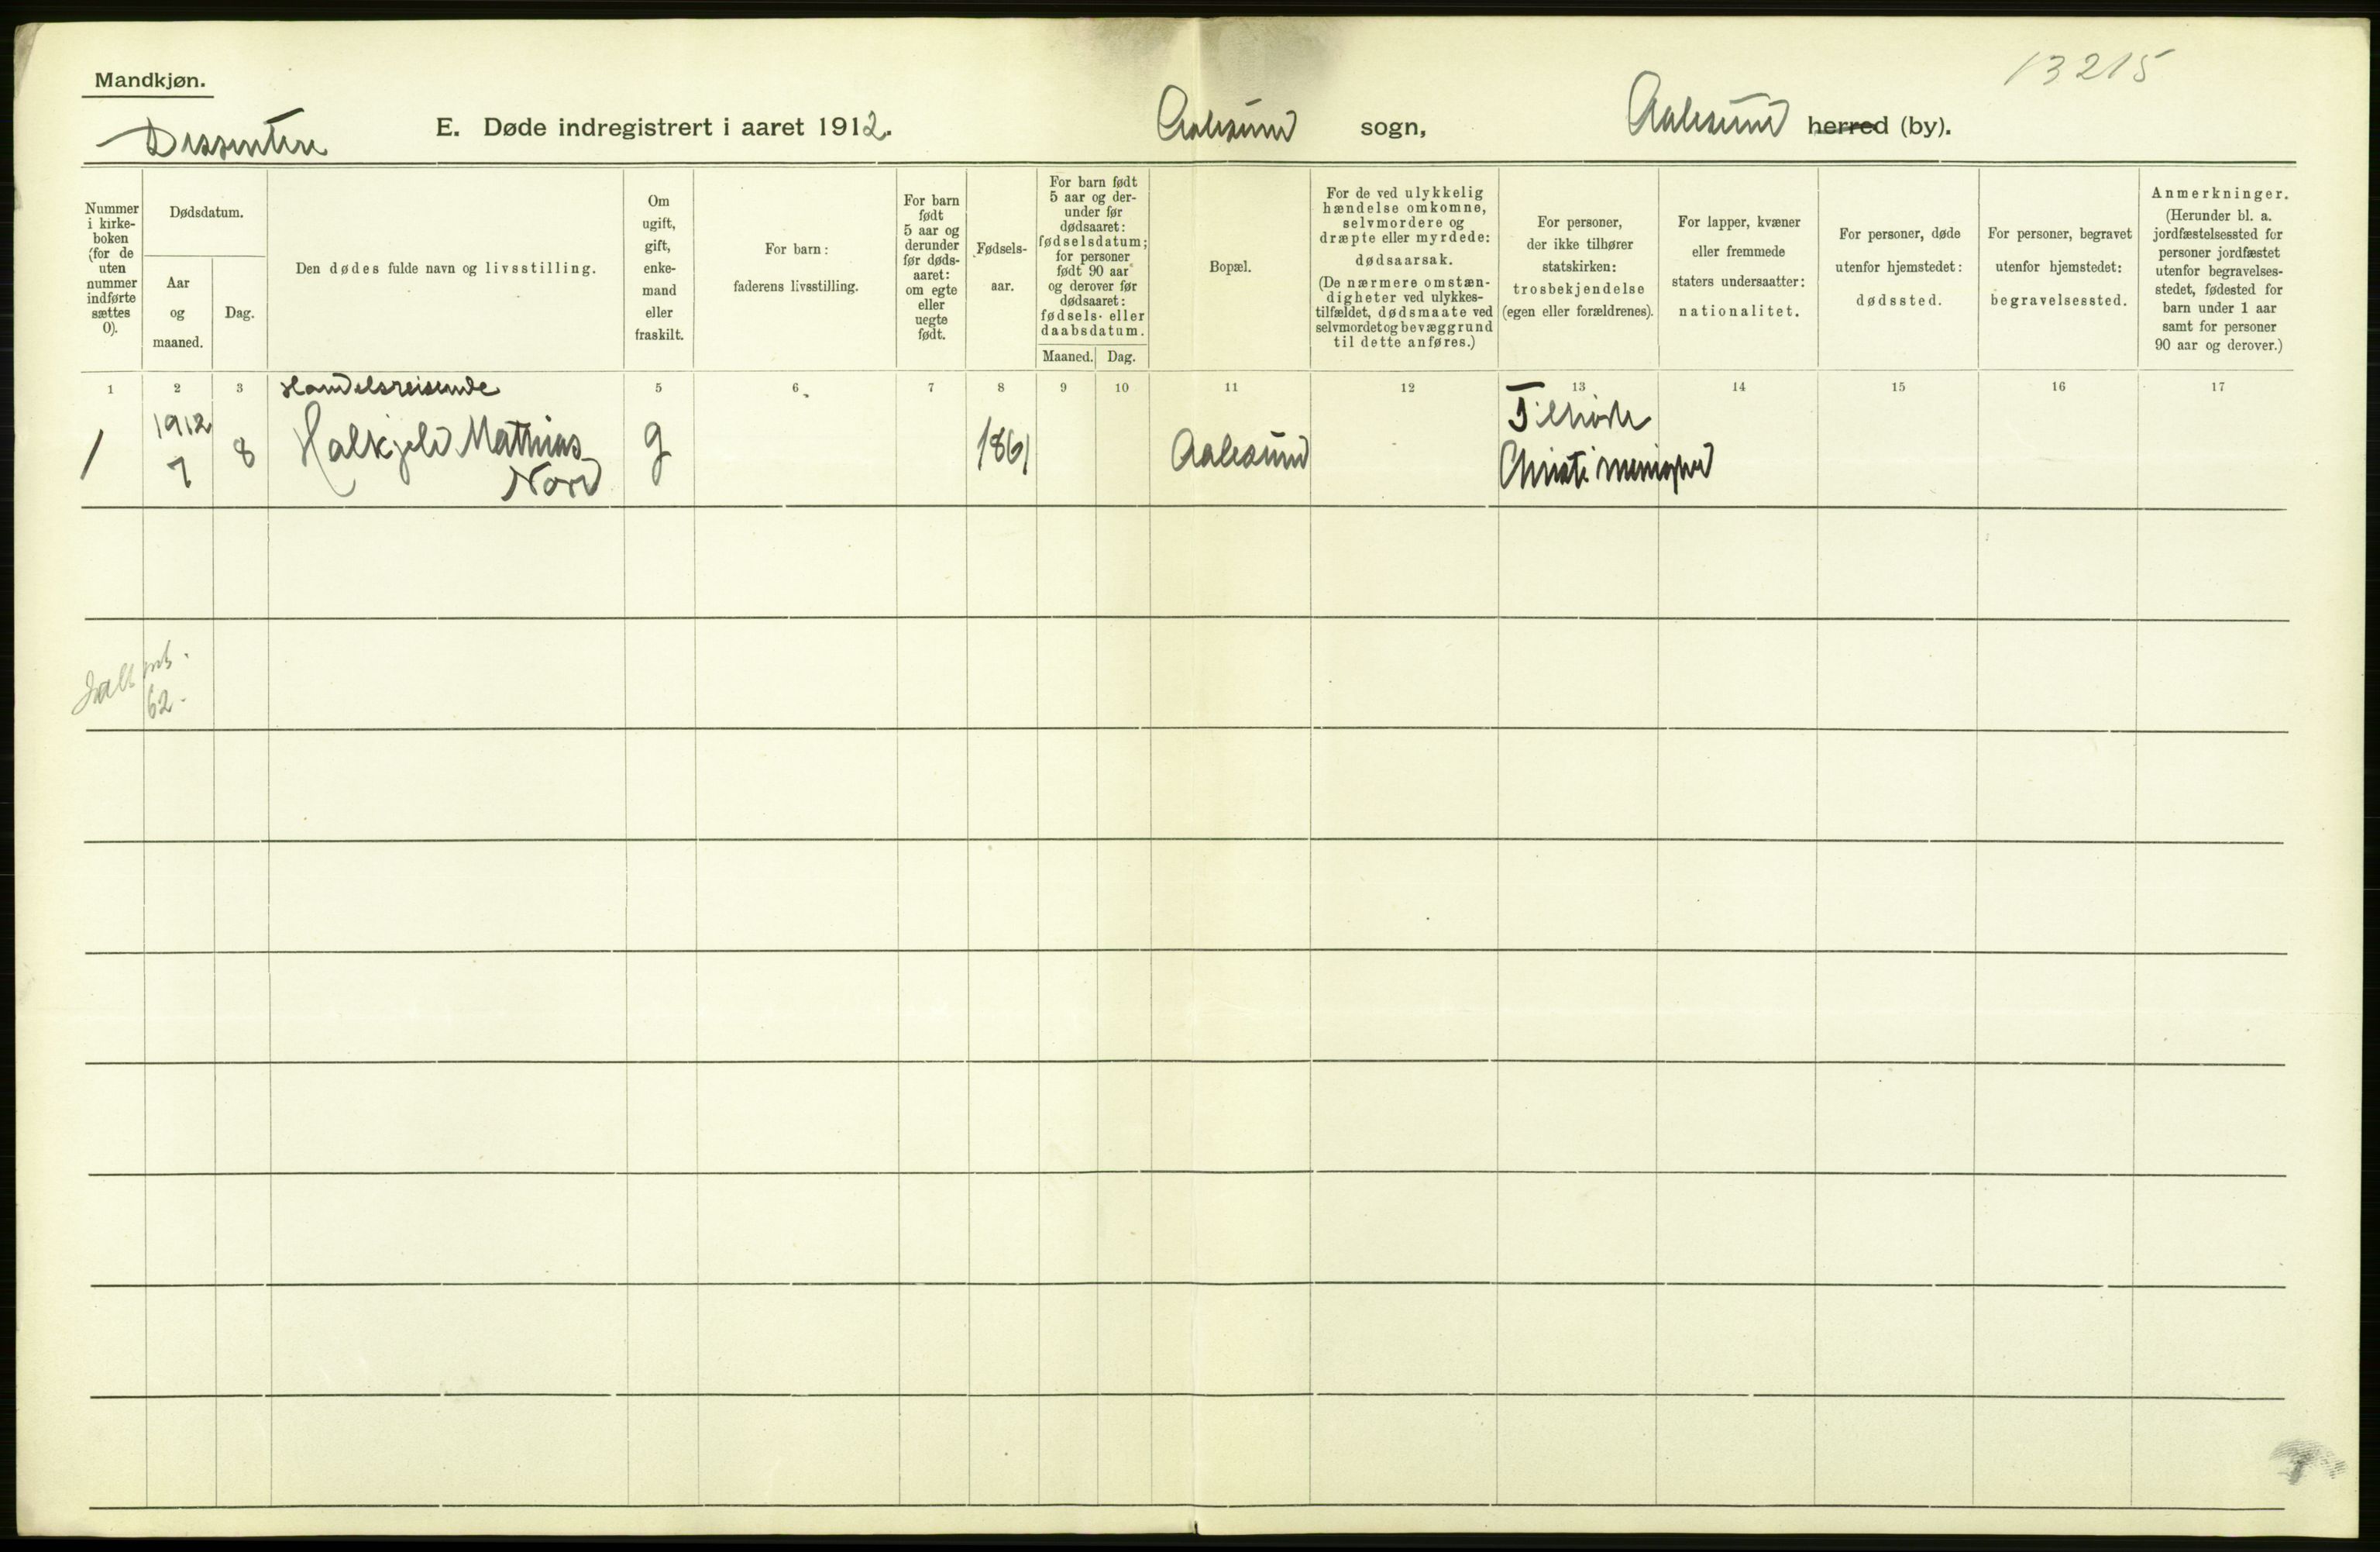 13215
Mandkjøn.
Dissentere
E. Døde indregistrert i aaret 1912.
Aalesund sogn,
Aalesund herred (by).
Nummer
i kirke-
boken
(for de
uten
nummer
indførte
sættes
0).
Dødsdatum.
Aar
og
maaned.
Dag.
Den dødes fulde navn og livsstilling.
Om
ugift,
gift,
enke-
mand
eller
fraskilt.
For barn:
faderens livsstilling.
For barn
født
5 aar og
derunder
før døds-
aaret:
om egte
eller
uegte
født.
Fødsels-
aar.
For barn født
5 aar og der-
under før
dødsaaret:
fødselsdatum;
for personer
født 90 aar
og derover før
dødsaaret:
fødsels- eller
daabsdatum.
Maaned.
Dag.
Bopæl.
For de ved ulykkelig
hændelse omkomne,
selvmordere og
dræpte eller myrdede:
dødsaarsak.
(De nærmere omstæn-
digheter ved ulykkes-
tilfældet, dødsmaate ved
selvmordet og bevæggrund
til dette anføres.)
For personer,
der ikke tilhører
statskirken:
trosbekjendelse
(egen eller forældrenes).
For lapper, kvæner
eller fremmede
staters undersaatter:
nationalitet.
For personer, døde
utenfor hjemstedet:
dødssted.
For personer, begravet
utenfor hjemstedet:
begravelsessted.
Anmerkninger.
(Herunder bl. a.
jordfæstelsessted for
personer jordfæstet
utenfor begravelses-
stedet, fødested for
barn under 1 aar
samt for personer
90 aar og derover.)
1 2 3 5 6 7 8 9 10 11 12 13 14 15 16 17
Handelsreisende
1 1912 7 8 Halkjeld Mathias Nord g 1861 Aalesund
Christi menighed
62.